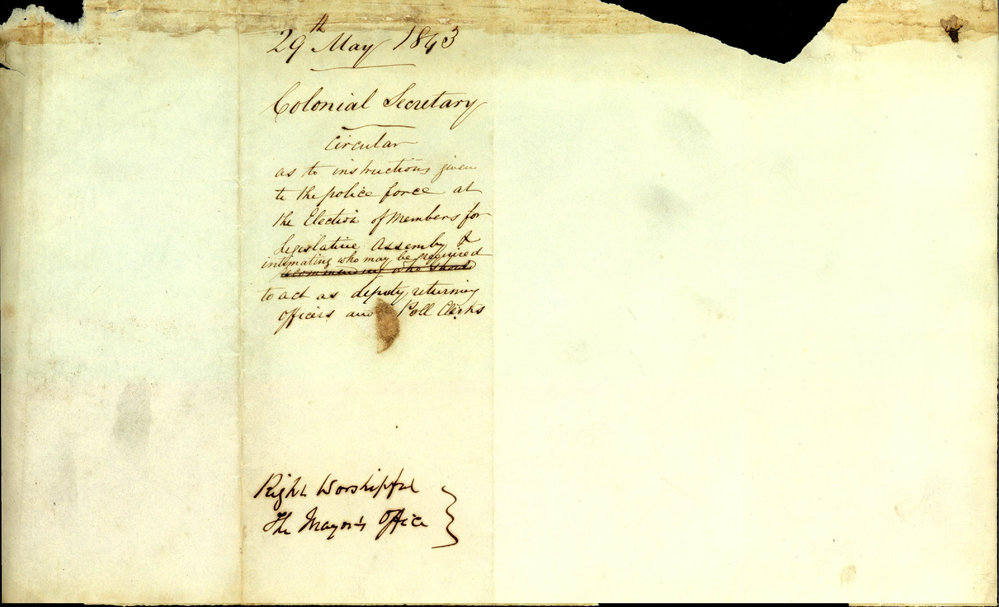 29th May 1843
Colonial Secretary
Circular
as to instructions given
to the police force at
the Election of Members for
Legislative Assembly &
intimating who may be required
recommending who should
to act as deputy returning
officers and Poll Clerks
Right Worshipful
The Mayor's Office